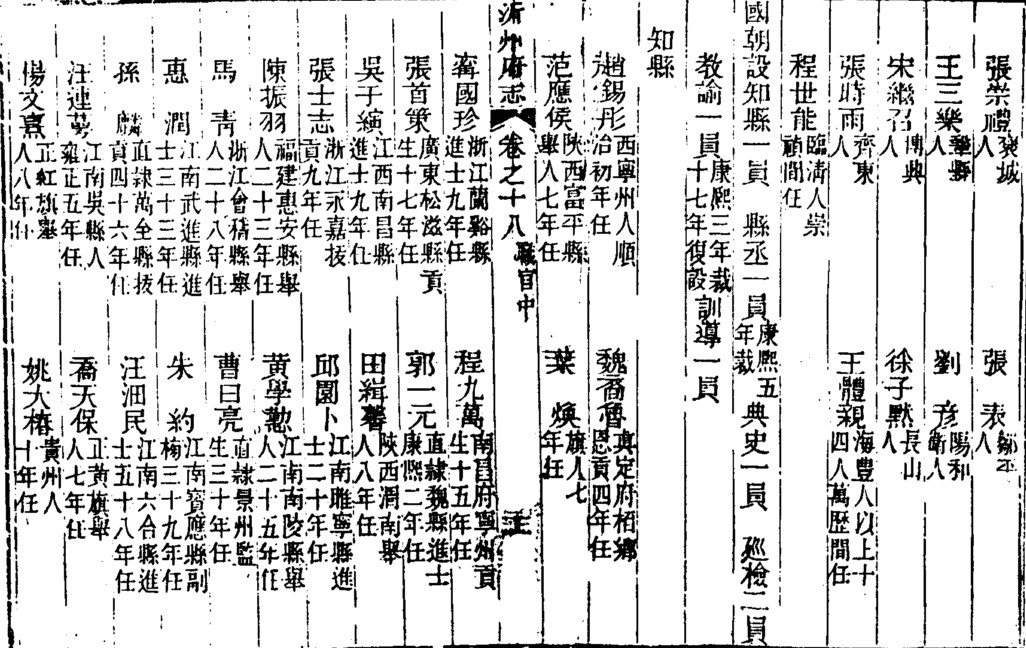 張崇禮 裴城人 張表 鄒平人
王三樂 舉縣人 劉彥 陽和衛人
宋繼召 博興人 徐子默 長山人
張時雨 齊東人 王體親 海豊人以上十四人萬歷間任
程世能 臨清人崇禎間任
國朝設知縣一員 縣丞一員康熙五年裁 典史一員 巡檢二員
教諭一員康熙三年裁十七年復設 訓導一員
知縣
趙錫彤 西寧州人順治初年任 魏裔魯 真定府栢鄉恩貢四年任
范應侯 陜西富平縣舉人七年任 葉煥 旗人七年任
沂州府志 卷之十八 職官中
甯國珍 浙江蘭谿縣進士九年任 程九萬 南昌府寧州貢生十五年任
張首策 廣東松滋縣貢生十七年任 郭一元 直隸魏縣進士康熙二年任
吳子縯 江西南昌縣進士九年任 田緝馨 陜西渭南舉人八年任
張士志 浙江永嘉拔貢九年任 邱園卜 江南睢寧縣進士二十年任
陳振羽 福建惠安縣舉人二十三年任 黃學懃 江南南陵縣舉人二十五年任
馬青 浙江會稽縣舉人二十八年任 曹曰亮 直隸景州監生三十年任
惠潤 江南武進縣進士三十三年任 朱約 江南寶應縣副榜三十九年任
孫麟 直隸萬全縣拔貢四十六年任 汪泗民 江南六合縣進士五十八年任
汪連芳 江南吳縣人雍正五年任 喬天保 正黃旗舉人七年任
楊文熹 正紅旗舉人八年任 姚大椿 貴州人十年任